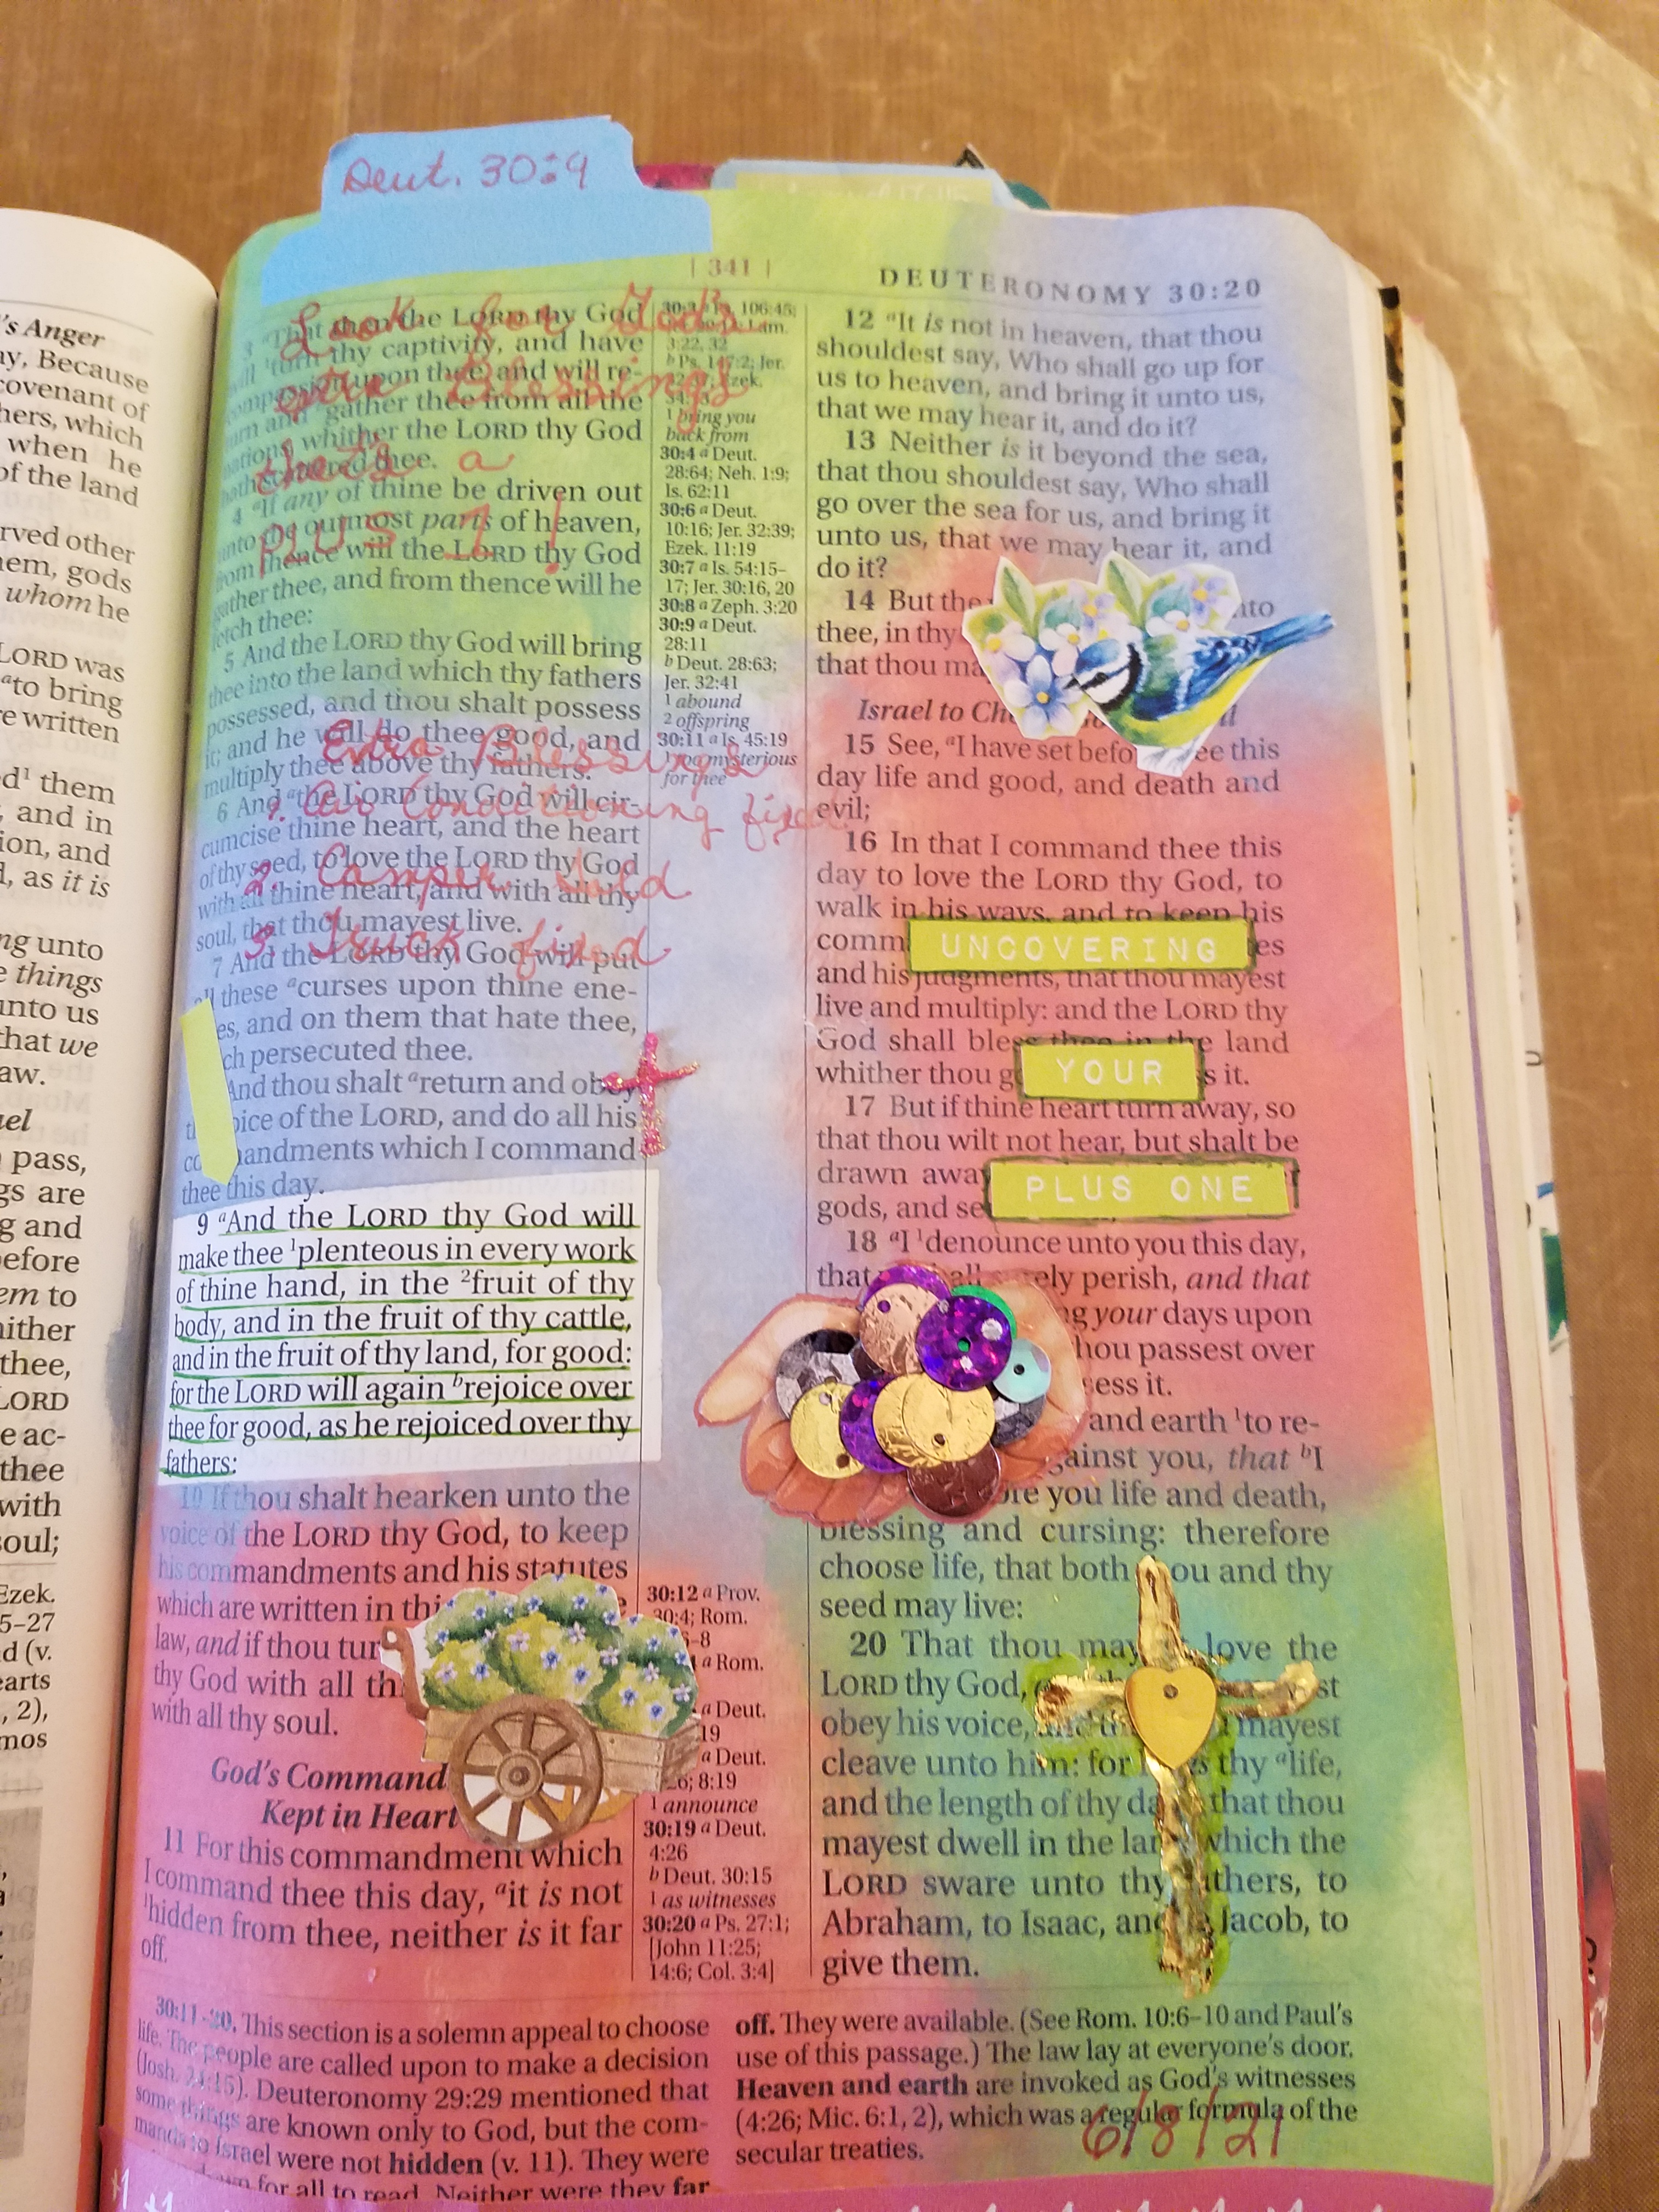 Deut. 30:9
's Anger
ay, Because
covenant of
hers, which
when he
of the land
rved other
hem, gods
whom he
LORD was
ᵃto bring
re written
ed¹ them
, and in
ion, and
l, as it is
ng unto
e things
unto us
that we
aw.
uel
pass,
gs are
g and
before
em to
either
thee,
LORD
e ac-
thee
with
soul;
Ezek.
5–27
d (v.
earts
, 2),
mos
| 341 |
DEUTERONOMY 30:20
Look for God's
extra Blessings
thats a
plus 1!
3 ᵃThat then the LORD thy God
will ᵇturn thy captivity, and have
compassion upon thee, and will re-
turn and ᵇgather thee from all the
nations whither the LORD thy God
hath scattered thee.
4 ᵃIf any of thine be driven out
unto the outmost parts of heaven,
from thence will the LORD thy God
gather thee, and from thence will he
fetch thee:
5 And the LORD thy God will bring
thee into the land which thy fathers
possessed, and thou shalt possess
it; and he will do thee good, and
multiply thee above thy fathers.
Extra Blessings
1. Air Conditioning fixed
2. Camper Sold
3. Truck fixed
6 And ᵃthe LORD thy God will cir-
cumcise thine heart, and the heart
of thy seed, to love the LORD thy God
with all thine heart, and with all thy
soul, that thou mayest live.
7 And the LORD thy God will put
all these ᵃcurses upon thine ene-
es, and on them that hate thee,
ch persecuted thee.
And thou shalt ᵃreturn and obey
oice of the LORD, and do all his
mandments which I command
thee this day.
9 ᵃAnd the LORD thy God will
make thee ¹plenteous in every work
of thine hand, in the ²fruit of thy
body, and in the fruit of thy cattle,
and in the fruit of thy land, for good:
for the LORD will again ᵇrejoice over
thee for good, as he rejoiced over thy
fathers:
10 If thou shalt hearken unto the
voice of the LORD thy God, to keep
his commandments and his statutes
which are written in thi
law, and if thou tur
thy God with all th
with all thy soul.
God's Command
Kept in Heart
11 For this commandment which
I command thee this day, ᵃit is not
¹hidden from thee, neither is it far
off.
106:45;
Lam.
3:22, 32
b Ps. 147:2; Jer.
Ezek.
1 bring you
back from
30:4 a Deut.
28:64; Neh. 1:9;
Is. 62:11
30:6 a Deut.
10:16; Jer. 32:39;
Ezek. 11:19
30:7 a Is. 54:15–
17; Jer. 30:16, 20
30:8 a Zeph. 3:20
30:9 a Deut.
28:11
b Deut. 28:63;
Jer. 32:41
1 abound
2 offspring
30:11 a Is. 45:19
1 too mysterious
for thee
30:12 a Prov.
30:4; Rom.
6–8
a Rom.
a Deut.
19
a Deut.
6; 8:19
1 announce
30:19 a Deut.
4:26
b Deut. 30:15
1 as witnesses
30:20 a Ps. 27:1;
[John 11:25;
14:6; Col. 3:4]
12 ᵃIt is not in heaven, that thou
shouldest say, Who shall go up for
us to heaven, and bring it unto us,
that we may hear it, and do it?
13 Neither is it beyond the sea,
that thou shouldest say, Who shall
go over the sea for us, and bring it
unto us, that we may hear it, and
do it?
14 But the nto
thee, in thy
that thou ma
Israel to Ch
15 See, ᵃI have set befo ee this
day life and good, and death and
evil;
16 In that I command thee this
day to love the LORD thy God, to
walk in his ways, and to keep his
comm es
UNCOVERING
and his judgments, that thou mayest
live and multiply: and the LORD thy
God shall bless thee in the land
whither thou g s it.
YOUR
17 But if thine heart turn away, so
that thou wilt not hear, but shalt be
drawn away
PLUS ONE
gods, and se
18 ᵃI ¹denounce unto you this day,
that shall surely perish, and that
ng your days upon
hou passest over
sess it.
and earth ¹to re-
gainst you, that ᵇI
ore you life and death,
blessing and cursing: therefore
choose life, that both thou and thy
seed may live:
20 That thou may love the
LORD thy God, st
obey his voice, and th mayest
cleave unto him: for he is thy ᵃlife,
and the length of thy da that thou
mayest dwell in the land which the
LORD sware unto thy fathers, to
Abraham, to Isaac, and to Jacob, to
give them.
30:11–20. This section is a solemn appeal to choose
life. The people are called upon to make a decision
(Josh. 24:15). Deuteronomy 29:29 mentioned that
some things are known only to God, but the com-
mands to Israel were not hidden (v. 11). They were
down for all to read. Neither were they far
off. They were available. (See Rom. 10:6–10 and Paul's
use of this passage.) The law lay at everyone's door.
Heaven and earth are invoked as God's witnesses
(4:26; Mic. 6:1, 2), which was a regular formula of the
secular treaties.
6/8/21